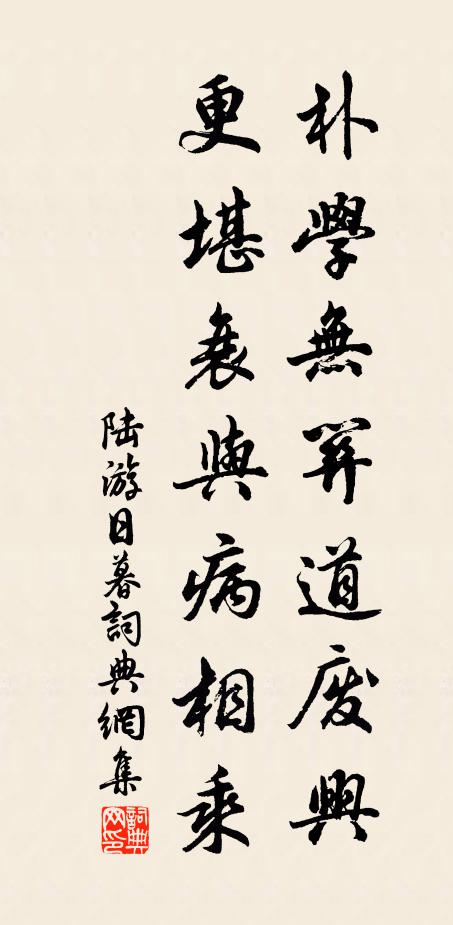 朴學無關道廢興
更堪衰與病相乘
陸游日暮詞典網集
詞典網印